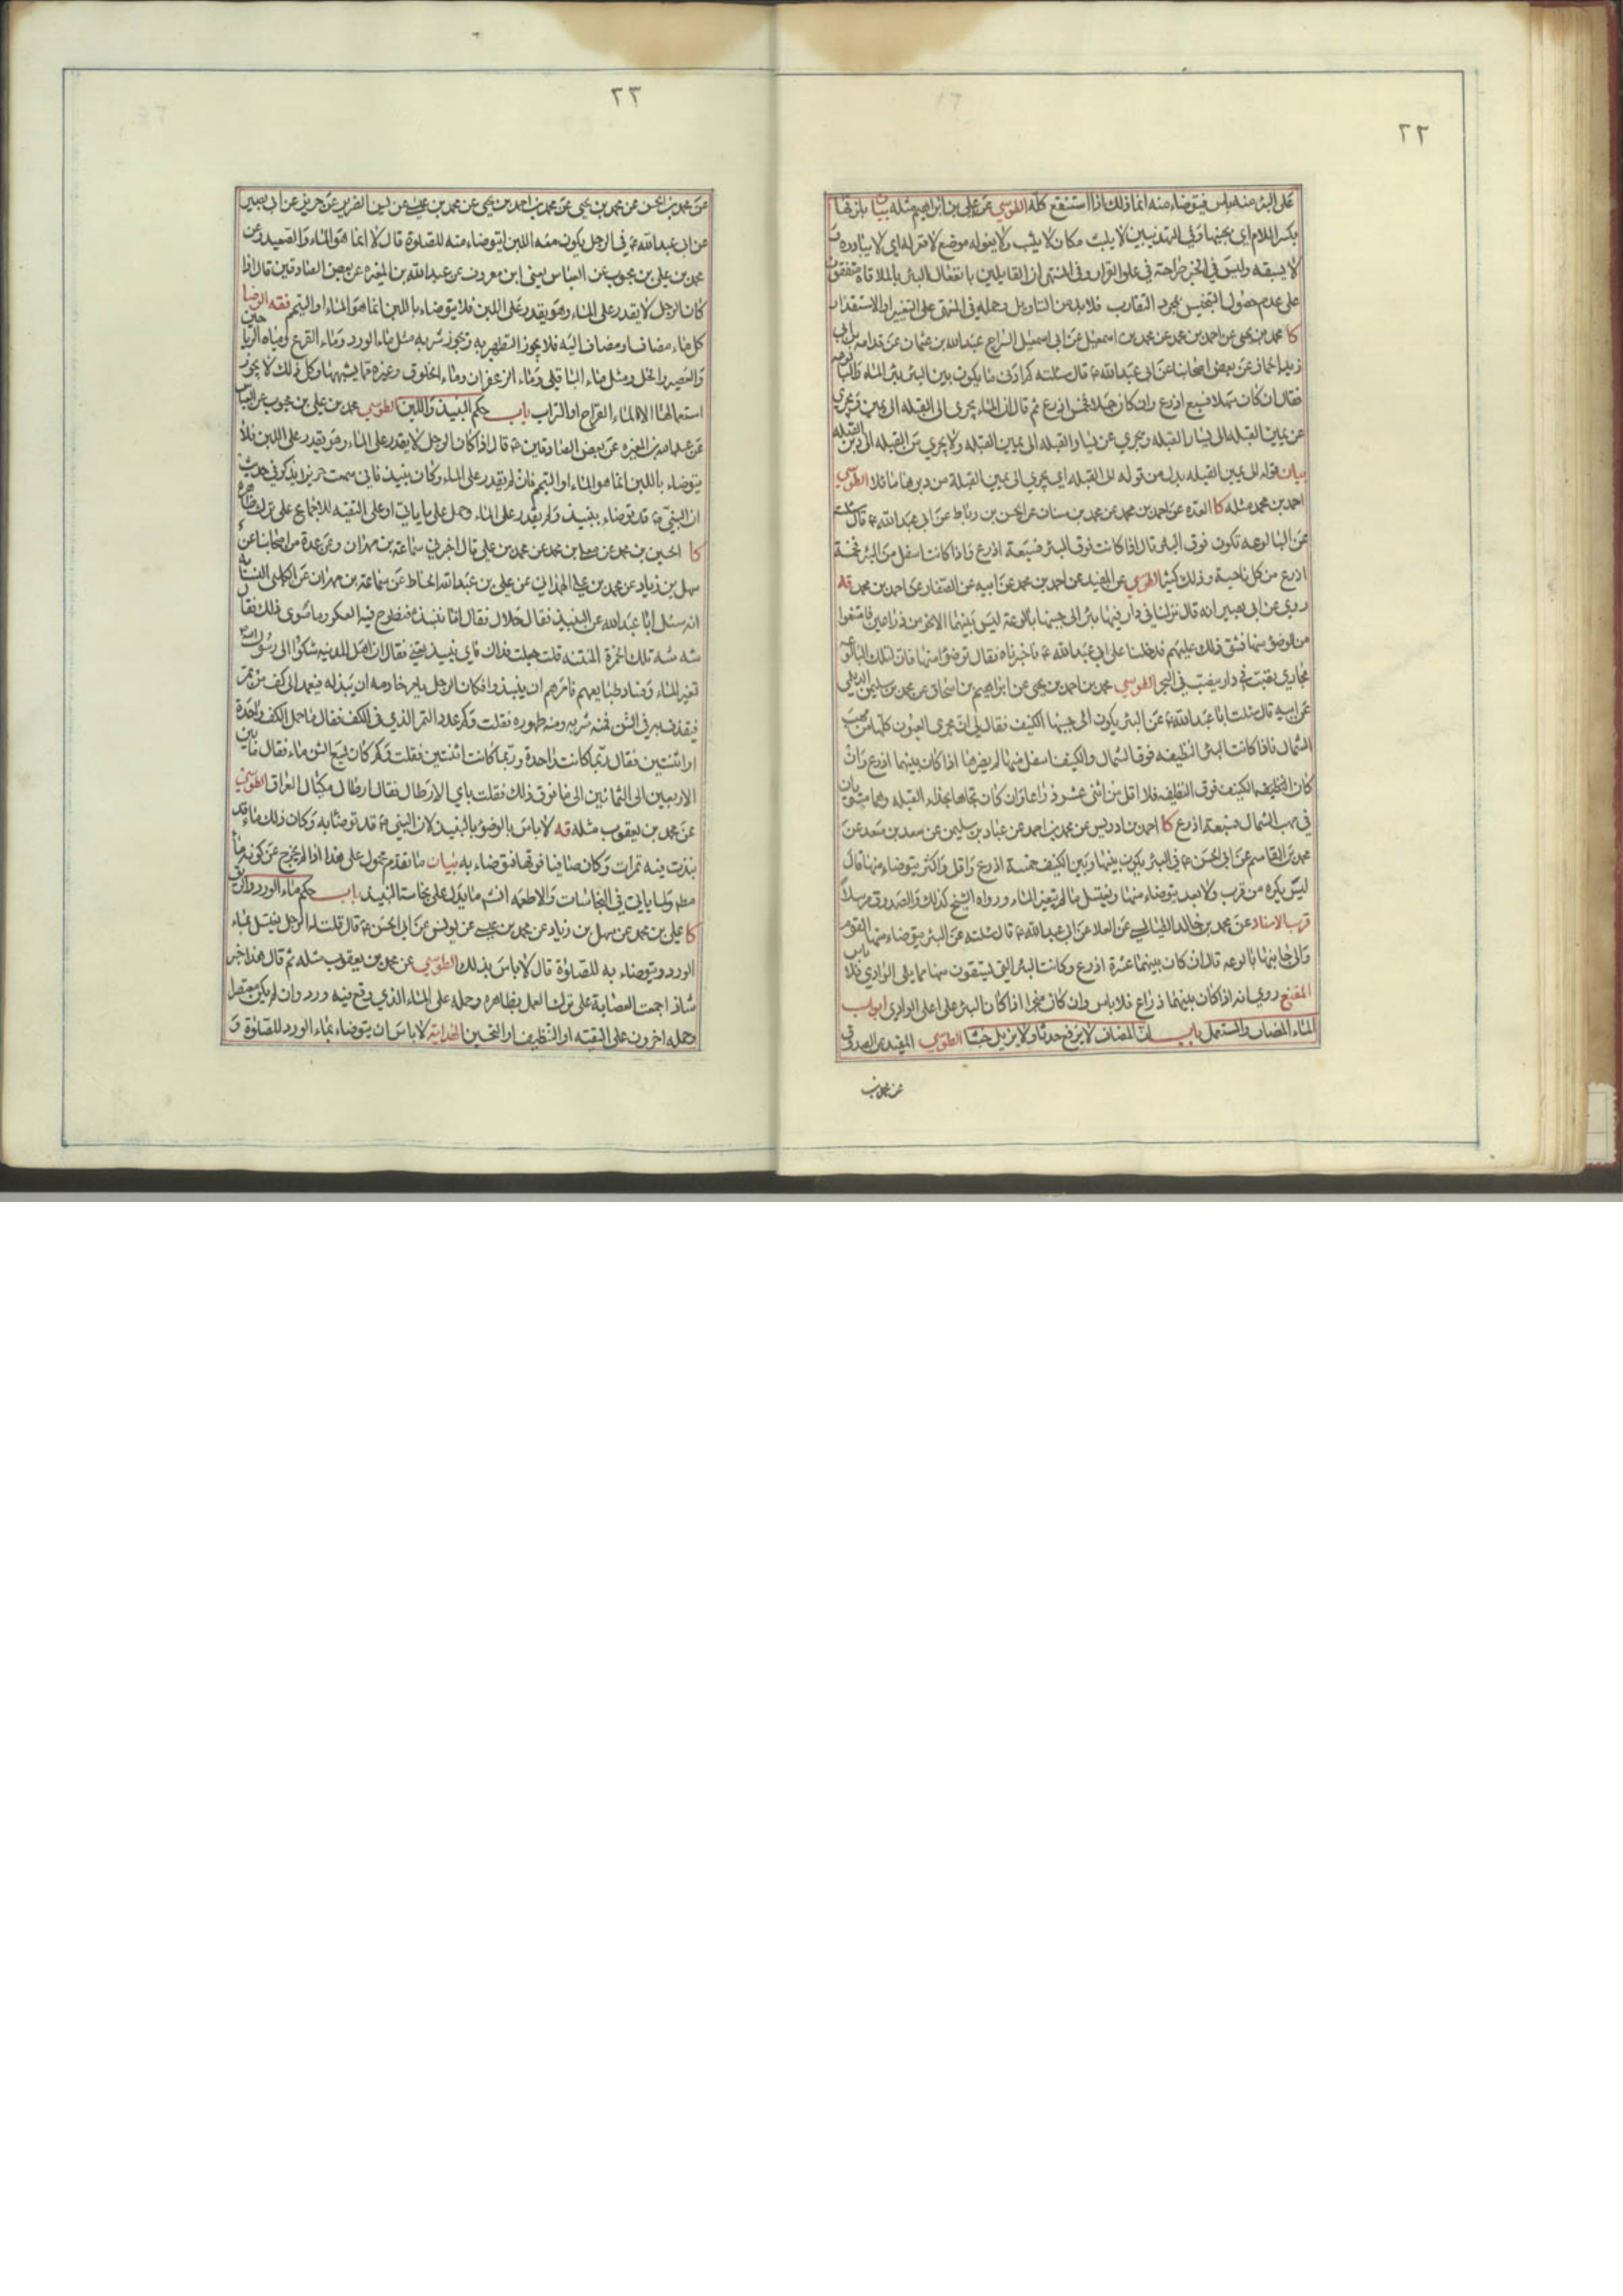 ٢٢
على البئر منه باس فيتوضاء منه انما ذلك اذا استنقع كله الطوسي عن علي بن ابراهيم مثله بيان
بكسر اللام اي بجنبها وفي التهذيبين لا يلبث مكان لا يثب ولا يغوله موضع لا قر له اي لا
لا يسبقه وليس في الخبر صراحة في علو القرار وفي المنتهى ان القايلين بانفعال البئر بالملاقاة متفقون
على عدم حصول التنجيس بمجرد التقارب فلا بد من التاويل وحمله في المنتهى على التغيير او الاستقذار
كا محمد بن يحيى عن احمد بن محمد عن محمد بن اسمعيل عن ابي اسمعيل السراج عبد الله بن عثمان عن قدامة بن ابي
زيد الحماز عن بعض اصحابنا عن ابي عبد الله ع قال سئلته كم ادنى ما يكون بين البئر بئر الماء والبالوعه
فقال ان كان سهلا فسبع اذرع وان كان جبلا فخمس اذرع ثم قال ان الماء يجري الى القبله الى يمين ويجري
عن يمين القبله الى يسار القبله ويجري عن يسار القبله الى يمين القبله ولا يجري من القبله الى دبر القبله
بيان قوله الى يمين القبله بدل من قوله الى القبله اي يجري الى يمين القبلة من دبرها مائلا الطوسي
احمد بن محمد مثله كا العده عن احمد بن محمد عن محمد بن سنان عن الحسن بن رباط عن ابي عبد الله ع قال سئلته
عن البالوعه تكون فوق البئر قال اذا كانت فوق البئر فسبعة اذرع واذا كانت اسفل من البئر فخمسة
اذرع من كل ناحية وذلك كثير الطوسي عن المفيد عن احمد بن محمد عن ابيه عن الصفار عن احمد بن محمد قه
روي عن ابي بصير انه قال نزلنا في دار فيها بئر الى جنبها بالوعة ليس بينهما الا نحو من ذراعين فامتنعوا
من الوضوء منها فشق ذلك عليهم فدخلنا على ابي عبد الله ع فاخبرناه فقال توضؤا منها فان لتلك البالوعه
مجاري تصب في واد ينصب في البحر الطوسي محمد بن احمد بن يحيى عن ابراهيم بن اسحاق عن محمد بن سليمن الديلمي
عن ابيه قال سئلت ابا عبد الله ع عن البئر يكون الى جنبها الكنيف فقال لي ان مجرى العيون كلها من مهب
الشمال فاذا كانت البئر النظيفه فوق الشمال والكنيف اسفل منها لم يضرها اذا كان بينهما اذرع وان
كان الكنيف فوق النظيفه فلا اقل من اثنى عشر ذراعا وان كان تجاها بحذاء القبله وهما مستويان
في مهب الشمال فسبعة اذرع كا احمد بن ادريس عن محمد بن احمد عن عباد بن سليمن عن سعد بن سعد عن
محمد بن القاسم عن ابي الحسن ع في البئر يكون بينها وبين الكنيف خمسة اذرع واقل واكثر يتوضاء منها قال
ليس يكره من قرب ولا بعد يتوضاء منها ويغتسل ما لم يتغير الماء ورواه الشيخ كذلك والصدوق مرسلا
قرب الاسناد عن محمد بن خالد الطيالسي عن العلا عن ابي عبد الله ع قال سئلته عن البئر يتوضاء منها القوم
والى جانبها بالوعه قال ان كان بينهما عشرة اذرع وكانت البئر التي ليستقون منها مما يلي الوادي فلا باس
المقنع روي انه اذا كان بينهما ذراع فلا باس وان كان مبخرا اذا كان البئر على اعلى الوادي ابواب
الماء المضاف والمستعمل باب ان المضاف لا يرفع حدثا ولا يزيل خبثا الطوسي المفيد عن الصدوق
عن محمد بن
٢٣
عن محمد بن الحسن عن محمد بن يحيى عن محمد بن احمد بن يحيى عن محمد بن عيسى عن يس الضرير عن حريز عن ابي بصير
عن ابي عبد الله ع في الرجل يكون معه اللبن ايتوضاء منه للصلوة قال لا انما هو الماء والصعيد وعن
محمد بن علي بن محبوب عن العباس يعني ابن معروف عن عبد الله بن المغيره عن بعض الصادقين قال اذا
كان الرجل لا يقدر على الماء وهو يقدر على اللبن فلا يتوضاء باللبن انما هو الماء او التيمم فقه الرضا
كل ماء مضاف او مضاف اليه فلا يجوز التطهر به ويجوز شربه مثل ماء الورد وماء القرع ومياه الرياحين
والعصير والخل ومثل ماء الباقلى وماء الزعفران وماء الخلوق وغيره مما يشبهها وكل ذلك لا يجوز
استعمالها الا الماء القراح او التراب باب حكم النبيذ واللبن الطوسي محمد بن علي بن محبوب عن العباس
عن عبد الله بن المغيره عن بعض الصادقين ع قال اذا كان الرجل لا يقدر على الماء وهو يقدر على اللبن فلا
يتوضاء باللبن انما هو الماء او التيمم فان لم يقدر على الماء وكان نبيذ فاني سمعت حريزا يذكر في حديث
ان النبي ص قد توضاء بنبيذ ولم يقدر على الماء وحمل على ما ياتي او على التقيه للاجماع على ترك ظاهره
كا الحسين بن محمد عن معلى بن محمد عن محمد بن علي قال اخبرني سماعة بن مهران وعن عدة من اصحابنا عن
سهل بن زياد عن محمد بن علي الهمداني عن علي بن عبد الله الحناط عن سماعة بن مهران عن الكلبي النسابه
انه سئل ابا عبد الله عن النبيذ فقال حلال فقال انا ننبذه فنطرح فيه العكر وما سوى ذلك فقال
شه شه تلك الخمرة المنتنه قلت جعلت فداك فاي نبيذ تعني فقال ان اهل المدينه شكوا الى رسول الله
تغير الماء وفساد طبايعهم فامرهم ان ينبذوا فكان الرجل يامر خادمه ان ينبذ له فيعمد الى كف من تمر
فيقذف به في الشن فمنه شربه ومنه طهوره فقلت وكم عدد التمر الذي في الكف فقال ما حمل الكف واحدة
او اثنتين فقال ربما كانت واحدة وربما كانت اثنتين فقلت وكم كان يسع الشن ماء فقال ما بين
الاربعين الى الثمانين الى ما فوق ذلك فقلت باي الارطال فقال ارطال مكيال العراق الطوسي
عن محمد بن يعقوب مثله قه لا باس بالوضوء بالنبيذ لان النبي ص قد توضا به وكان ذلك ماء قد
نبذت فيه تمرات وكان صافيا فوقها فتوضاء به بيان ما تقدم محمول على هذا اذا لم يخرج عن كونه ماء
مطلقا ولما ياتي في النجاسات والاطعمه انشم ما يدل على نجاسة النبيذ باب حكم ماء الورد والريق
كا علي بن محمد عن سهل بن زياد عن محمد بن عيسى عن يونس عن ابي الحسن ع قال قلت له الرجل يغتسل بماء
الورد ويتوضاء به للصلوة قال لا باس بذلك الطوسي عن محمد بن يعقوب مثله ثم قال هذا خبر
شاذ اجمعت العصابة على ترك العمل بظاهره وحمله على الماء الذي وقع فيه ورد وان لم يكن معتصرا
وحمله اخرون على التقيه او التنظيف او التحسين الهداية لا باس ان يتوضاء بماء الورد للصلوة و